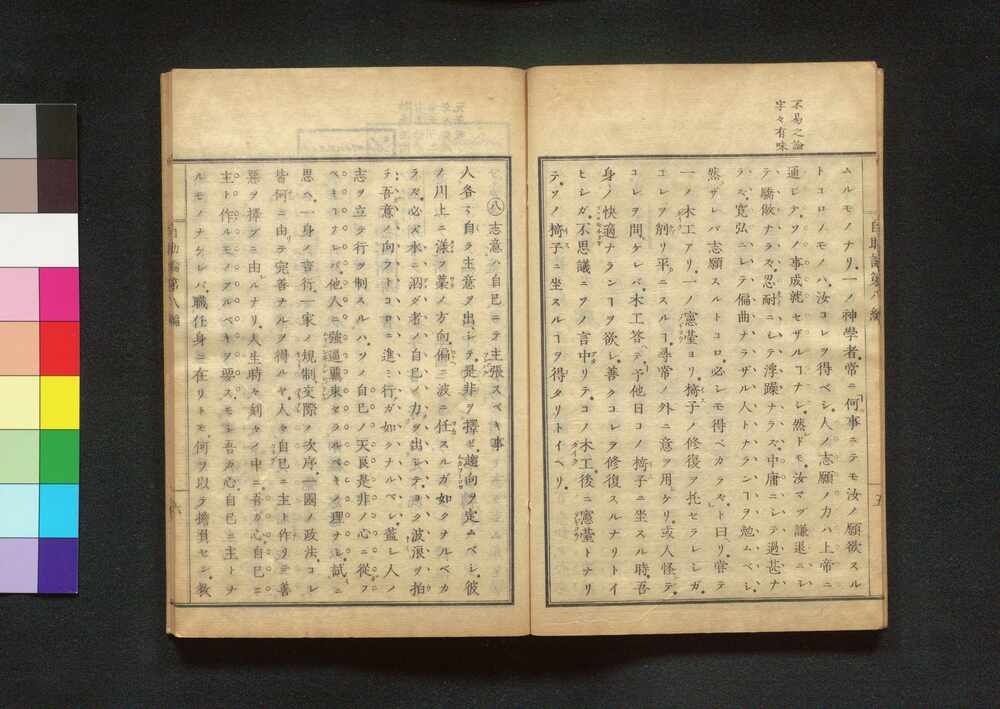 不易之論
字々有味
ムルモノナリ。一ノ神學者。常ニ何事ニテモ汝ノ願欲スル
トコロノモノハ。汝コレヲ得ベシ。人ノ志願ノ力ハ上帝ニ
通ジテ。ソノ事成就セザルヿナシ。然ドモ。汝マヅ謙退ニシ
テ驕傲ナラズ。忍耐ニシテ浮躁ナラズ。中庸ニシテ過甚ナ
ラズ。寛弘ニシテ偏曲ナラザル人トナランヿヲ勉ムベシ。
然ザレバ志願スルトコロ。必シモ得ベカラズ。ト曰リ。甞テ
一ノ木工アリ。一ノ憲臺ヨリ。椅子ノ修復ヲ托セラレシガ。
コレヲ削リ平ニスルヿ。尋常ノ外ニ意ヲ用ケリ。或人怪テ。
コレヲ問ケレバ。木工答テ。予他日コノ椅子ニ坐スル時。吾
身ノ快適ナランヿヲ欲シ。善クコレヲ修復スルナリトイ
ヒシガ。不思議ニソノ言中リテ。コノ木工後ニ憲臺トナリ
テ。ソノ椅子ニ坐スルヿヲ得タリトイヘリ。
自助論第八編
五
㊇志意ハ自己ニテ主張スベキ事
人各〻自ラ主意ヲ出シテ。是非ヲ擇ビ。趨向ヲ定ムベシ。彼
ノ川上ニ漾フ藁ノ方向。偏ニ波ニ任スルガ如クナルベカ
ラズ。必ズ水ニ泅グ者ノ。自己ノ力ヲ出シテ。ヨク波浪ヲ拍
チ。吾意ノ向フトコロニ進ミ行ガ如クナルベシ。蓋シ人ノ
志ヲ立テ行ヲ制スルハ。ソノ自己ノ天良是非ノ心ニ從フ
ベキヿナレバ。他人ニ強逼羈束サラルベキノ理ナシ。試ニ
思ヘ。一身ノ言行。一家ノ規制。交際ノ次序。一國ノ政法。コレ
皆何ニ由テ完善ナルヲ得ルヤ。人々自己ニ主上作リテ善
惡ヲ擇ブニ由ルナリ。人生時々刻々ノ中ニ。吾ガ心自己ニ
主ト作ルモノアルベキヲ要ス。モシ吾ガ心自己ニ主トナ
ルモノナケレバ。職任身ニ在リトモ何ヲ以テ擔負セン。教
自助論第八編
六